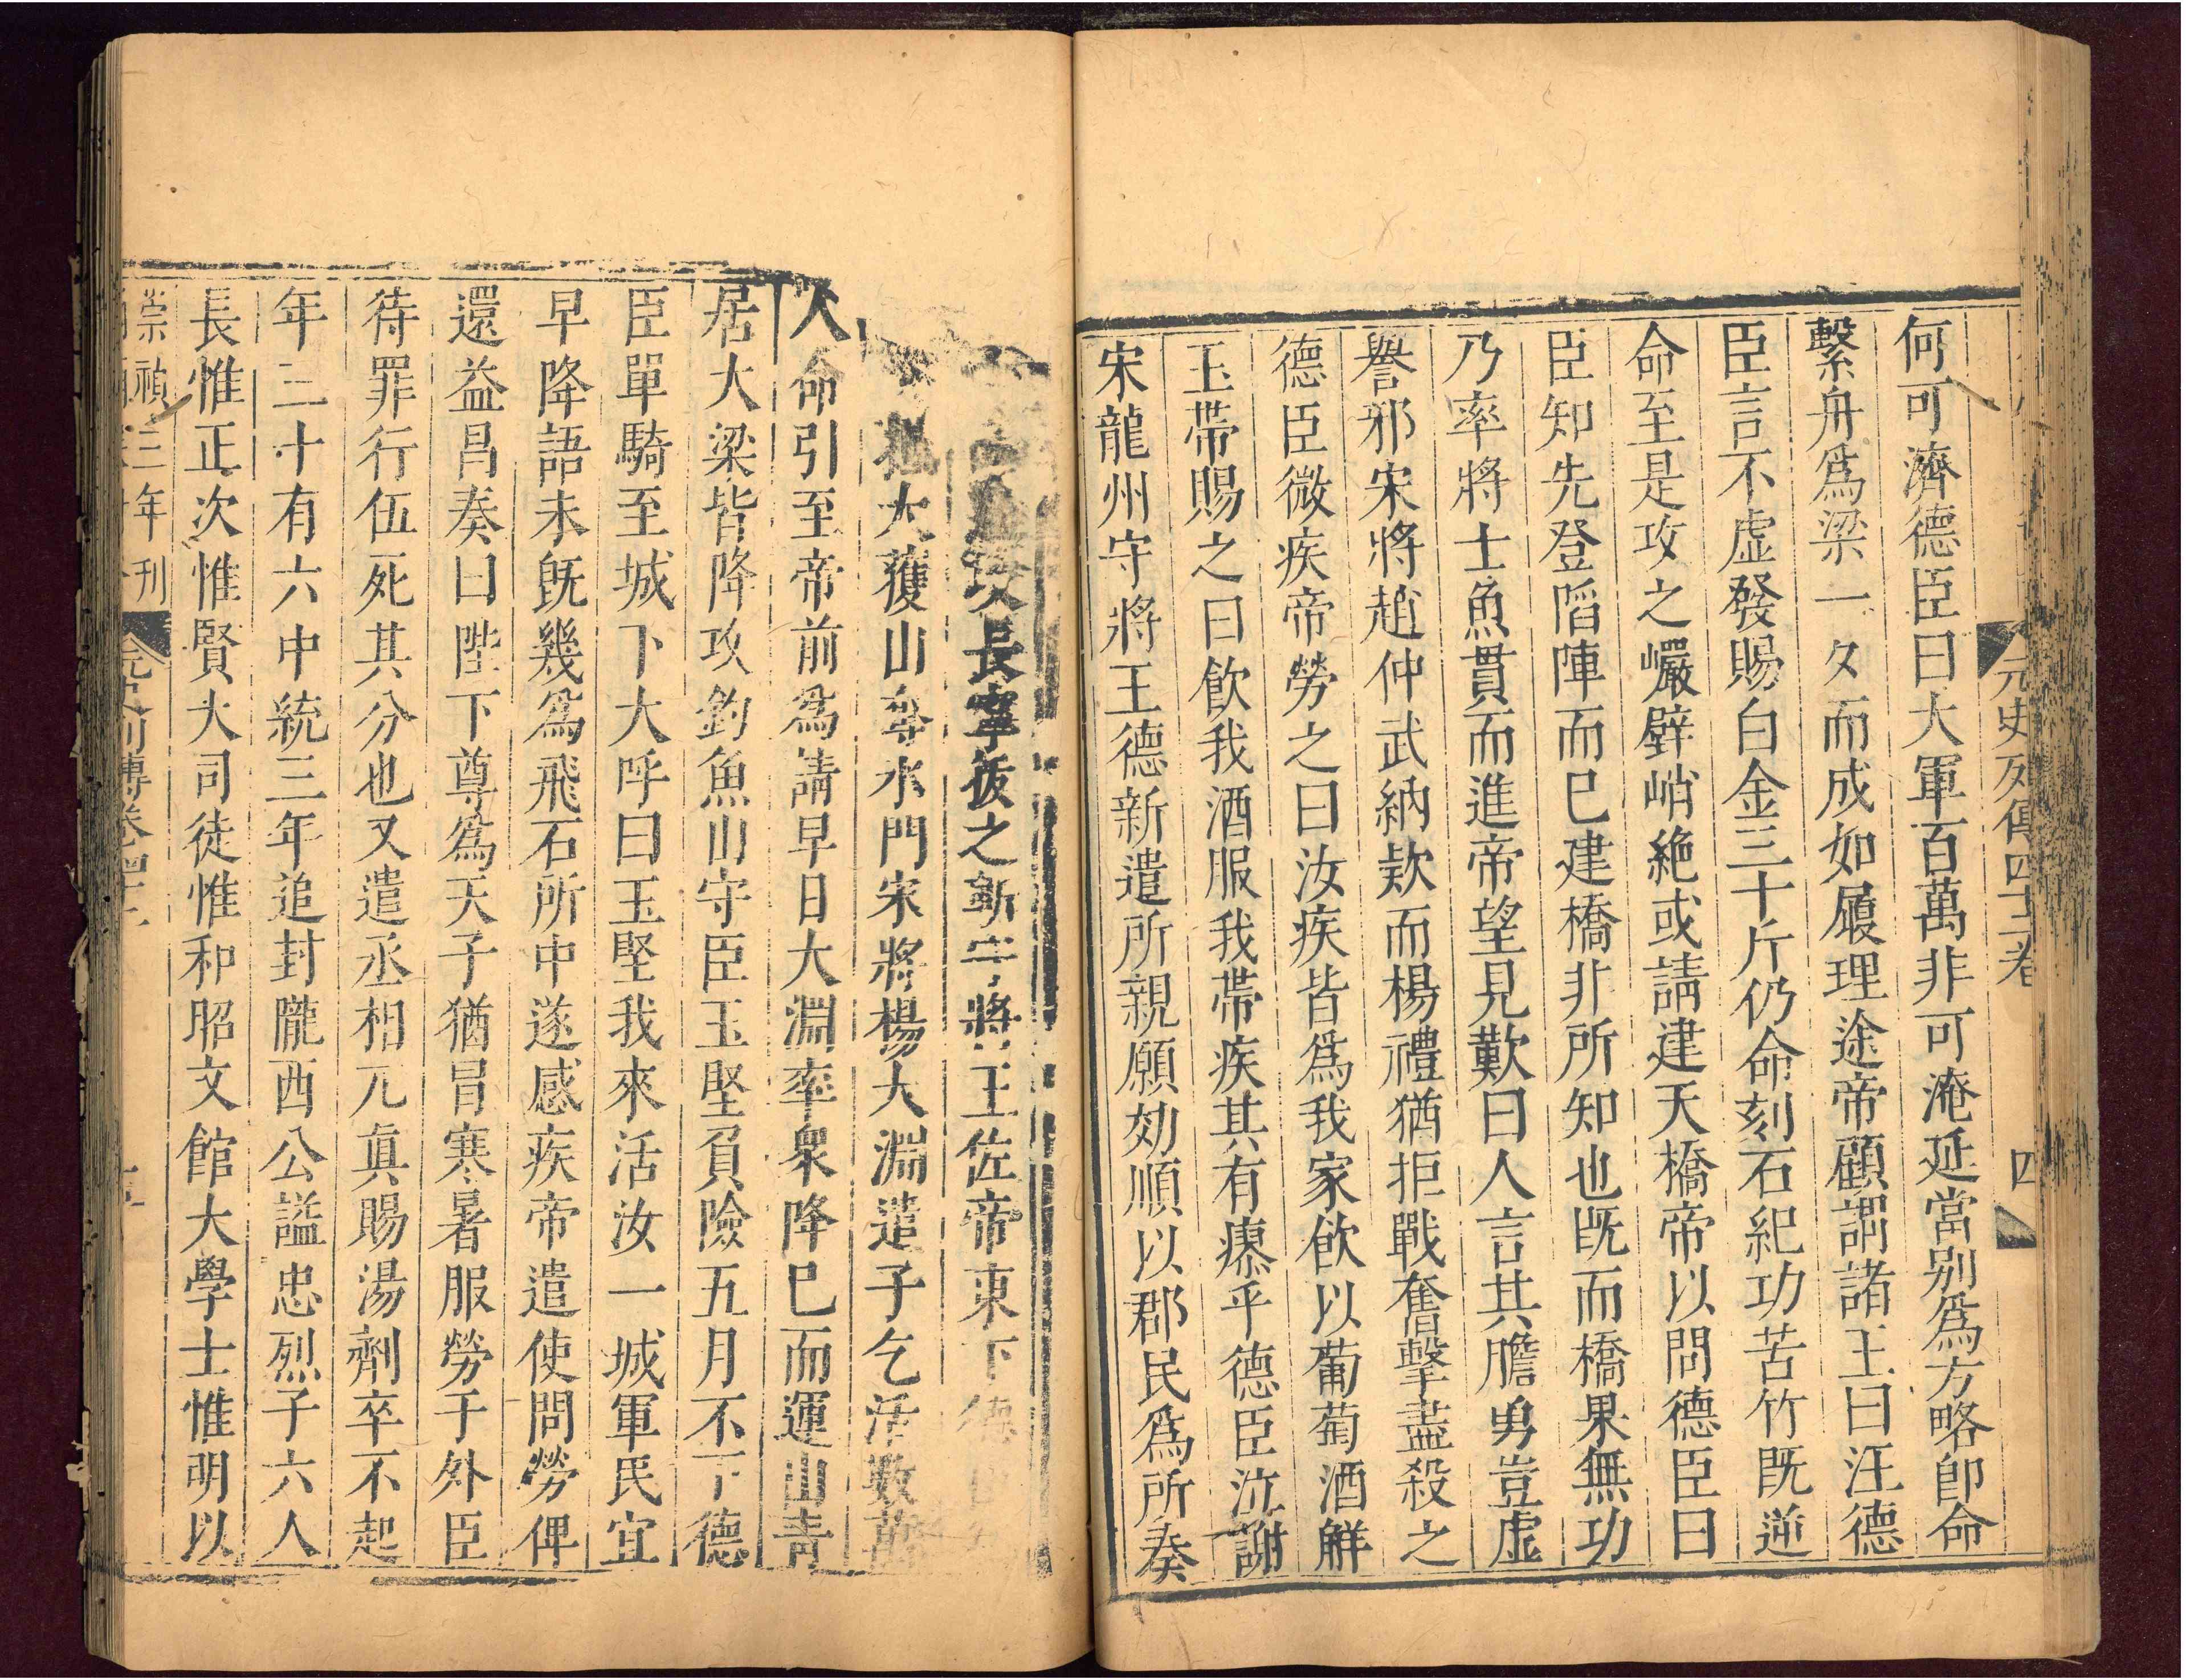 元史列傳四十二卷
四
何可濟德臣曰大軍百萬非可淹延當别爲方略卽命
繫舟爲梁一夕而成如履理途帝顧謂諸王曰汪德
臣言不虛發賜白金三十斤仍命刻石紀功苦竹既逆
命至是攻之巖壁峭絶或請建天橋帝以問德臣曰
臣知先登陷陣而巳建橋非所知也既而橋果無功
乃率將士魚貫而進帝望見歎曰人言其膽勇豈虛
譽邪宋將趙仲武納欵而楊禮猶拒戰奮擊盡殺之
德臣微疾帝勞之曰汝疾皆爲我家飲以葡萄酒觧
玉帶賜之曰飲我酒服我帶疾其有瘳乎德臣泣謝
宋龍州守將王德新遣所親願効順以郡民爲所奏
攻長寧拔之斬守將王佐帝東下德
大獲山奪水門宋將楊大淵遣子乞活數萬
人命引至帝前爲請早日大淵率衆降巳而運山青
居大梁皆降攻釣魚山守臣王堅負險五月不下德
臣單騎至城下大呼曰王堅我來活汝一城軍民宜
早降語未旣幾爲飛石所中遂感疾帝遣使問勞俾
還益昌奏曰陛下尊爲天子猶冒寒暑服勞于外臣
待罪行伍死其分也又遣丞相兀眞賜湯劑卒不起
年三十有六中統三年追封隴西公諡忠烈子六人
長惟正次惟賢大司徒惟和昭文館大學士惟明以
崇禎三年刊
元史列傳卷四十二